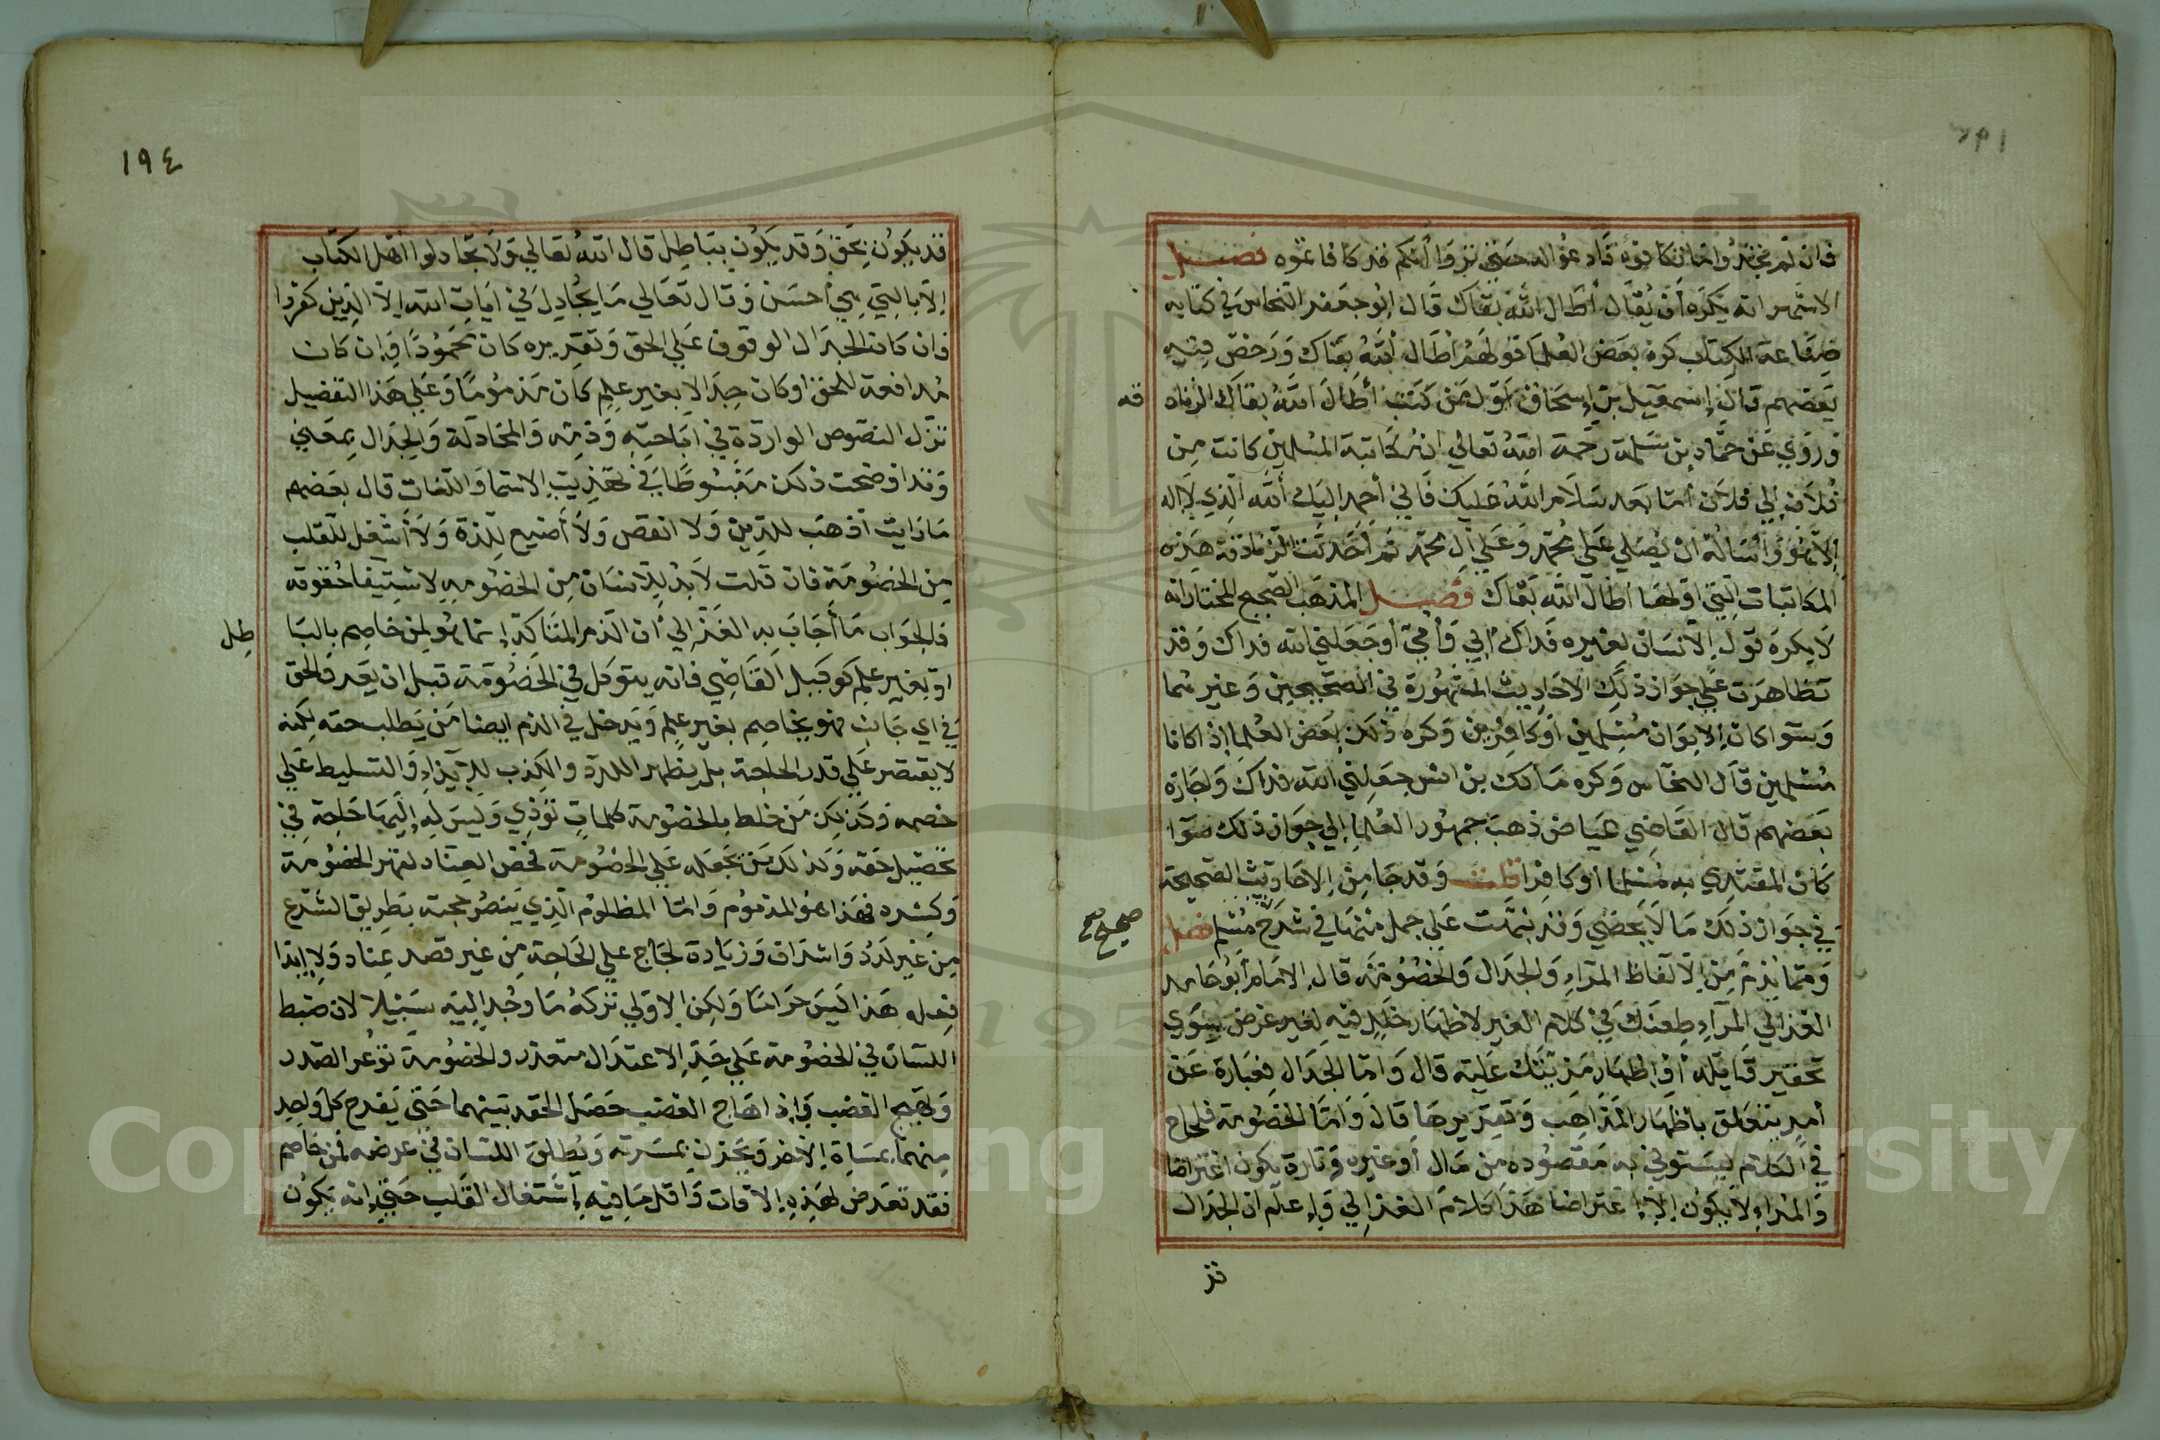 فان لم تجدوا ما تكافؤه فادعوا له حتى تروا انكم قد كافاتموه فصل
الاشهر انه يكره أن يُقال أطال الله بقاك قال ابو جعفر النحاس في كتابه
صناعة الكتاب كره بعض العلما قولهم اطال الله بقاك ورخص فيه
بعضهم قال إسمعيل بن إسحاق اول من كتب أطال الله بقاك الزناد
قه
وروي عن حماد بن سلمة رحمة الله تعالى ان مكاتبة المسلمين كانت من
فلان إلى فلان أما بعد سلام الله عليك فاني أحمد اليك الله الذي لا اله
إلا هو وأسأله ان يصلي على محمد وعلى آل محمد ثم أحدثت الزنادقة هذه
المكاتبات التي اولها اطال الله بقاك فصل المذهب الصحيح المختار انه
لا يكره قول الانسان لغيره فداك أبي وأمي أو جعلني الله فداك وقد
تظاهرت على جواز ذلك الاحاديث المشهورة في الصحيحين وغيرهما
وسوآ كان الابوان مسلمين أو كافرين وكره ذلك بعض العلما إذا كانا
مسلمين قال النحاس وكره مالك بن انس جعلني الله فداك واجازه
بعضهم قال القاضي عياض ذهب جمهور العلما إلى جواز ذلك سوآ
كان المفتدي به مسلما أو كافرا قلت وقد جا من الاحاديث الصحيحة
في جواز ذلك ما لا يحصى وقد نبهت على جمل منها في شرح مسلم فصل
صحيح صح
ومما يذم من الالفاظ المراء والجدال والخصومة قال الامام أبو حامد
الغزالي المرآء طعنك في كلام الغير لاظهار خلل فيه لغير غرض سوى
تحقير قايله أو اظهار مزيتك عليه قال واما الجدال فعبارة عن
أمر يتعلق باظهار المذاهب وتقريرها قال واما الخصومة فلجاج
في الكلام ليستوفي به مقصوده من مال أو غيره وتارة يكون اعتراضا
والمراء لا يكون إلا اعتراضا هذا كلام الغزالي واعلم ان الجدال
قد
١٩٤
قد يكون بحق وقد يكون بباطل قال الله تعالى ولا تجادلوا اهل الكتاب
الا بالتي هي أحسن وقال تعالى ما يجادل في ايات الله الا الذين كفروا
فان كان الجدال الوقوف على الحق وتقريره كان محمودا وان كان
مدافعة للحق او كان جدالا بغير علم كان مذموما وعلى هذا التفصيل
تنزل النصوص الواردة في اباحته وذمه والمجادلة والجدال بمعنى
وقد اوضحت ذلك مبسوطا في تهذيب الاسما واللغات قال بعضهم
ما رايت أذهب للدين ولا انقص ولا أضيع للذة ولا أشغل للقلب
من الخصومة فان قلت لا بد للانسان من الخصومه لاستيفا حقوقه
فالجواب ما أجاب به الغزالي أن الذم المتاكد إنما هو لمن خاصم بالبا
طل
او بغير علم كوكيل القاضي فانه يتوكل في الخصومة قبل ان يعرف الحق
في اي جانب هو يخاصم بغير علم ويدخل في الذم ايضا من يطلب حقه لكنه
لا يقتصر على قدر الحاجة بل يظهر اللدد والكذب للايذاء والتسليط على
خصمه وكذلك من خلط بالخصومة كلمات تؤذي وليس له إليها حاجة في
تحصيل حقه وكذلك من يحمله على الخصومة محض العناد لقهر الخصومة
وكسره فهذا هو المذموم واما المظلوم الذي ينصر حجته بطريق الشرع
من غير لدد واسراف وزيادة لجاج على الحاجة من غير قصد عناد ولا إيذا
ففعله هذا ليس حراما ولكن الاولى تركه ما وجد إليه سبيلا لان ضبط
اللسان في الخصومة على حد الاعتدال متعذر والخصومة توغر الصدر
وتهيج الغضب وإذا هاج الغضب حصل الحقد بينهما حتى يفرح كل واحد
منهما بمساة الاخر ويحزن بمسرته ويطلق اللسان في عرضه فمن خاصم
فقد تعرض لهذه الافات واقل ما فيه إشتغال القلب حتى إنه يكون